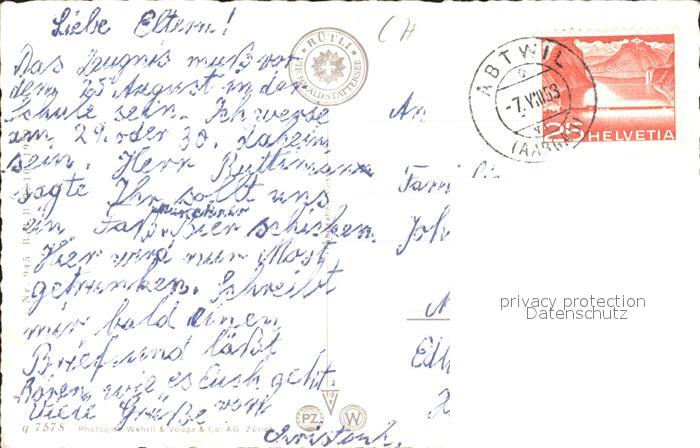 Liebe Eltern!
Das Zeugnis muß vor
dem 25 August in der
Schule sein. Ich werde
am 29. oder 30. daheim
sein. Herr Büttimann
sagte Ihr sollt uns
ein Faß Münchner Bier schicken.
Hier wird nur Most
getrunken. Schreibt
mir bald einen
Brief und läßt
hören, wie es Euch geht.
Viele Grüße von
Christoph.
CH
RÜTLI
VIERWALDSTÄTTERSEE
ABTWIL
-7.VIII.53
(AARGAU)
25 HELVETIA
An
Fami
Joh
privacy protection
Datenschutz
Nr. 945
q 7578 Photoglob-Wehrli & Vouga & Co. AG. Zürich
PZ W